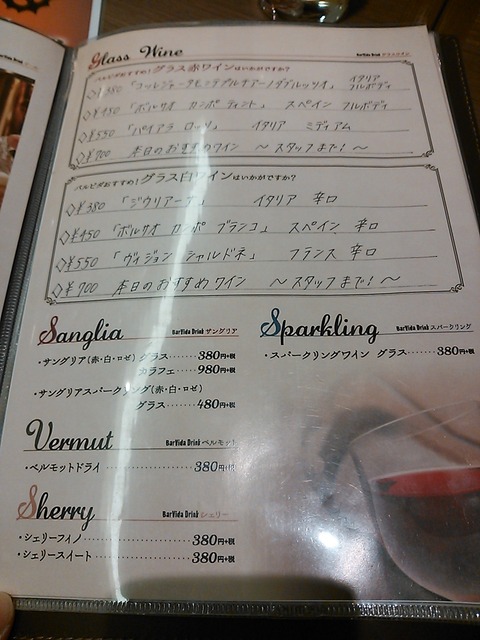 Glass Wine
BarVida Drink グラスワイン
バルビダおすすめ！グラス赤ワインはいかがですか？
◇¥380 「コッレジャーナモンテプルチアーノダブルッツオ」 イタリア フルボディ
◇¥450 「ボルサオ カンポ ティント」 スペイン フルボディ
◇¥550 「パイアラ ロッソ」 イタリア ミディアム
◇¥700 本日のおすすめワイン 〜スタッフまで！〜
バルビダおすすめ！グラス白ワインはいかがですか？
◇¥380 イタリア 辛口
◇¥450 「ボルサオ カンポ ブランコ」 スペイン 辛口
◇¥550 「ヴィジョン シャルドネ」 フランス 辛口
◇¥700 本日のおすすめワイン 〜スタッフまで！〜
Sanglia
BarVida Drink サングリア
・サングリア(赤・白・ロゼ) グラス······380円+税
カラフェ····980円+税
・サングリアスパークリング(赤・白・ロゼ)
グラス·······480円+税
Sparkling
BarVida Drink スパークリング
・スパークリングワイン グラス······380円+税
Vermut
BarVida Drink ベルモット
・ベルモットドライ···············380円+税
Sherry
BarVida Drink シェリー
・シェリーフィノ···············380円+税
・シェリースイート············380円+税